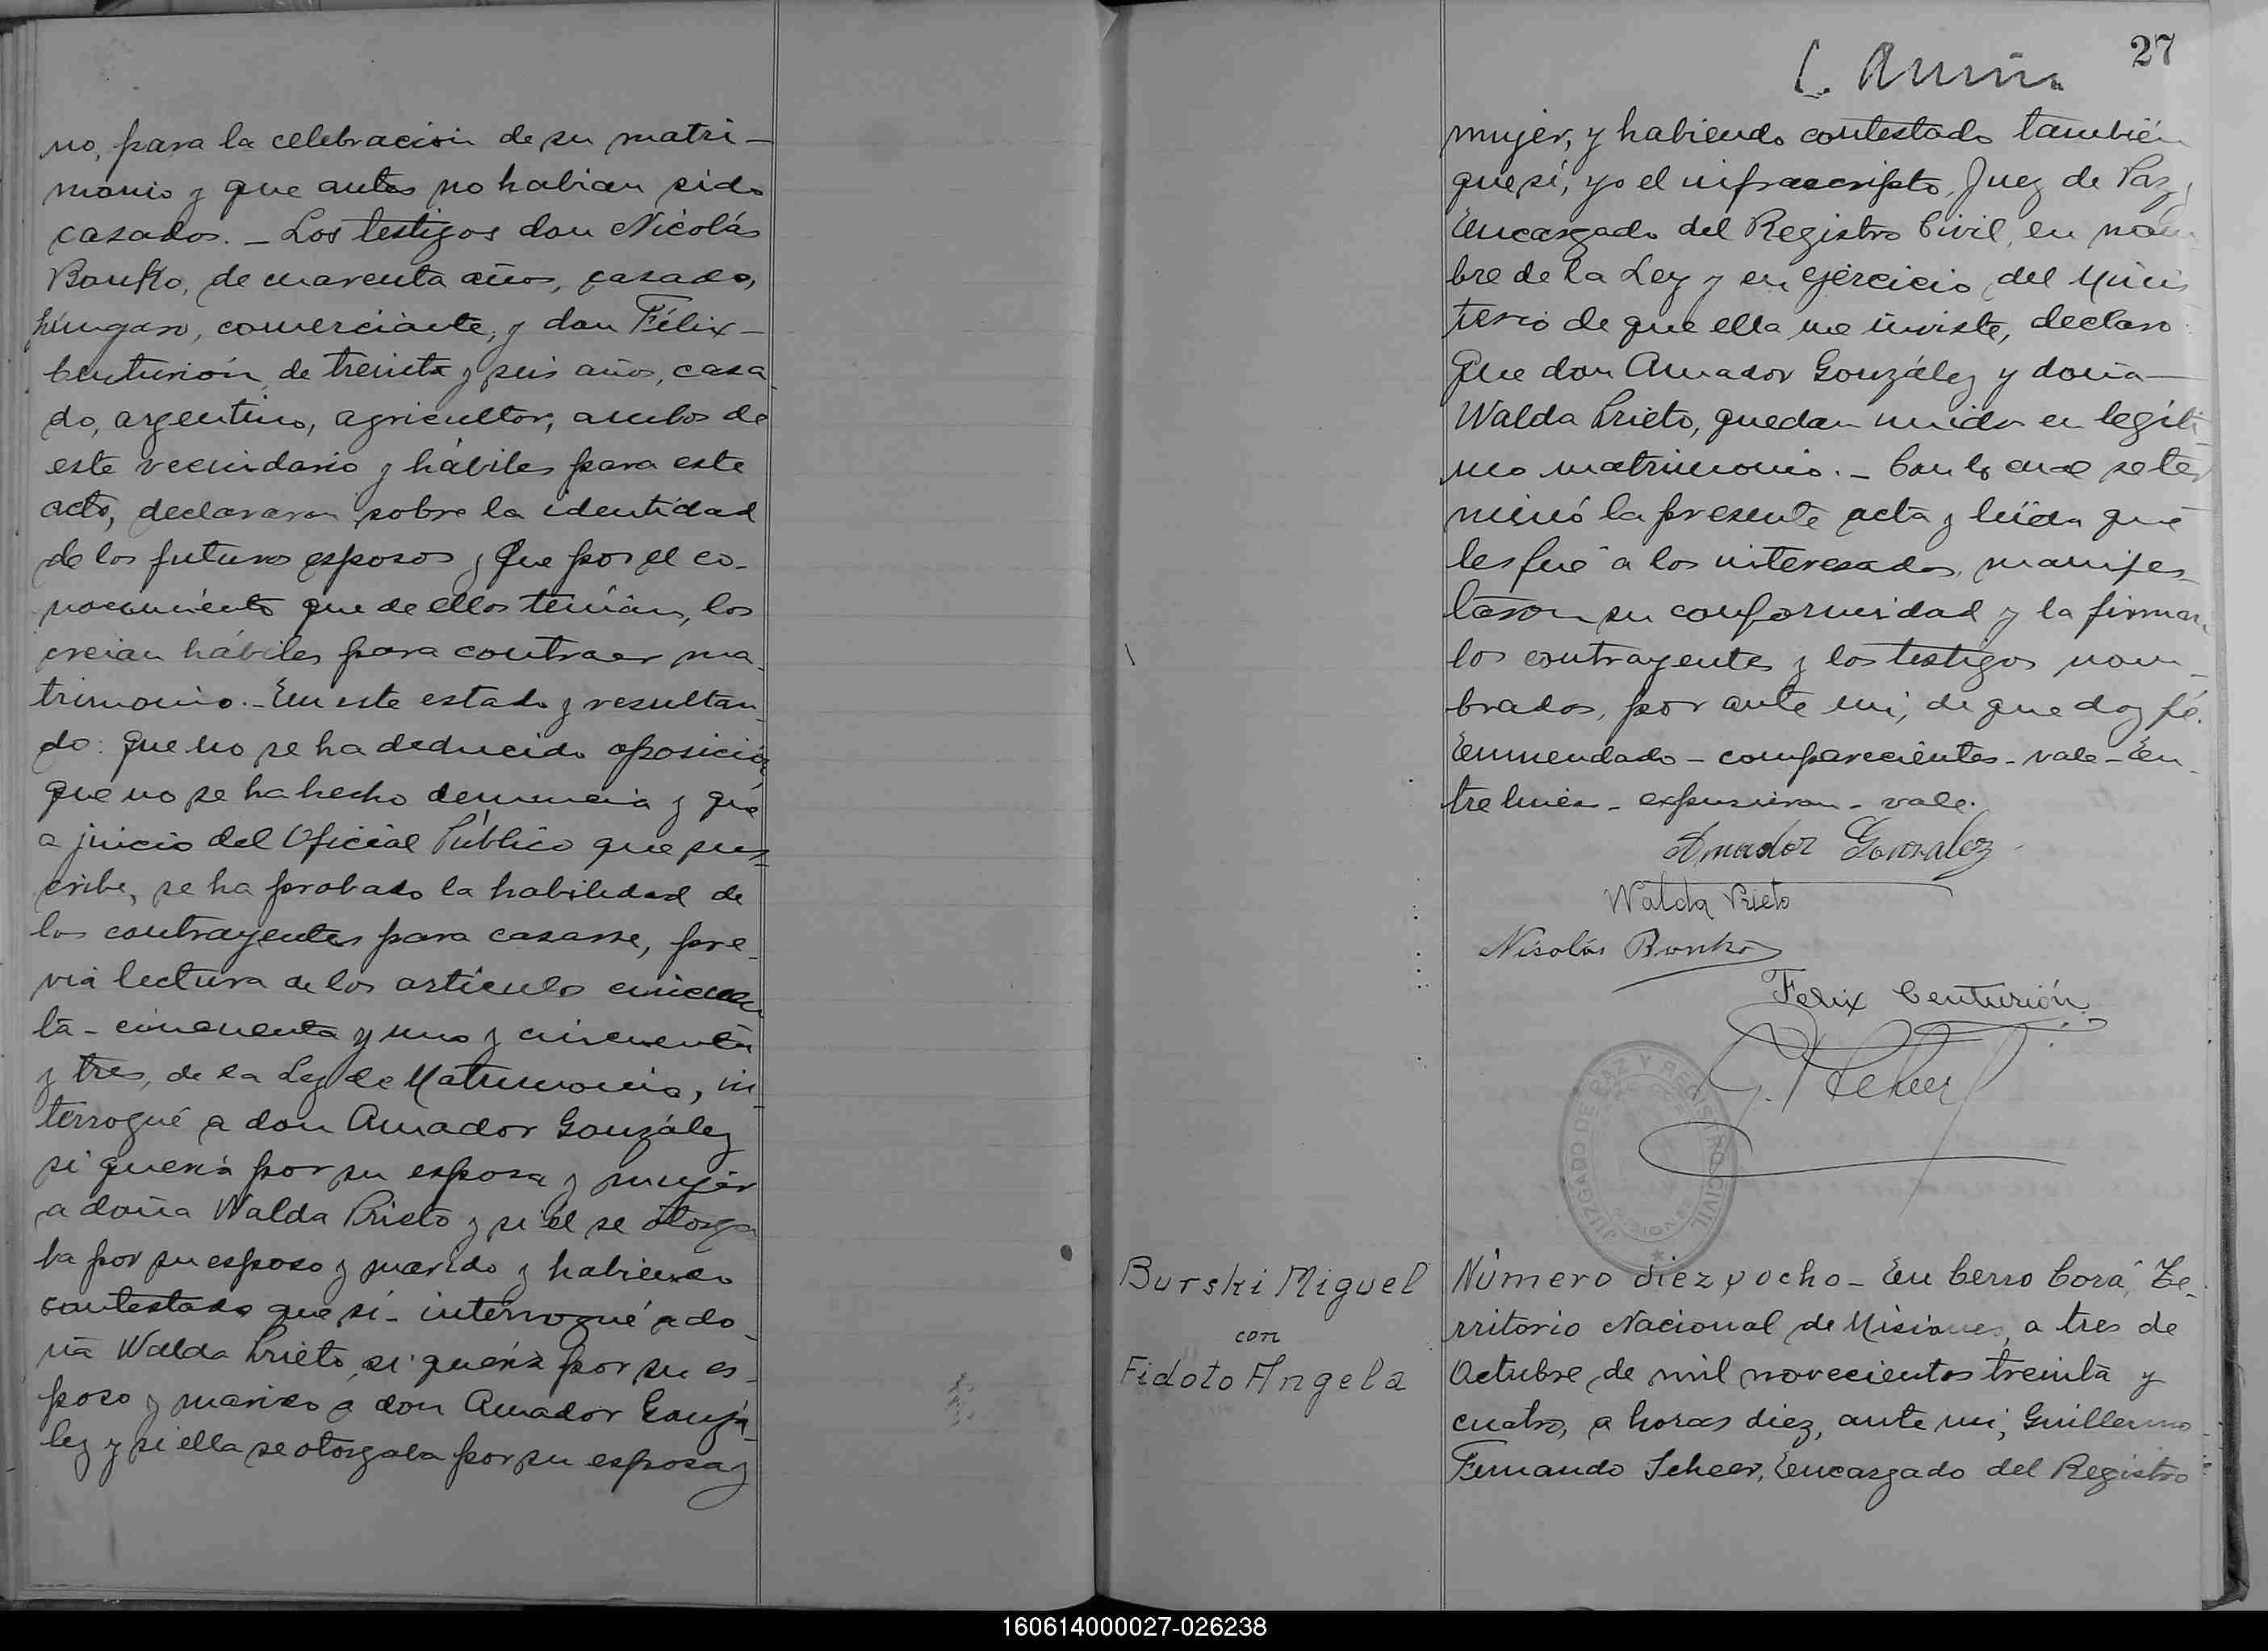 no, para la celebración de su matri-
monio y que antes no habian sido
casados. - Los testigos don Nicolás
Bonko, de cuarenta años, casado,
húngaro, comerciante, y don Félix -
Centurión, de treinta y seis años, casa-
do, argentino, agricultor, ambos de
este vecindario y hábiles para este
acto, declararon sobre la identidad
de los futuros esposos y que por el co-
nocimiento que de ellos tenían, los
creian hábiles para contraer ma-
trimonio. - En este estado y resultan-
do: que no se ha deducido oposición
que no se ha hecho denuncia y que
a juicio del Oficial Público que sus-
cribe, se ha probado la habilidad de
los contrayentes para casarse, pre-
via lectura de los artículos cincuen
ta - cincuenta y uno y cincuenta
y tres, de la Ley de Matrimonio, in-
terrogué a don Amador González
si quería por su esposa y mujer
a doña Walda Prieto y si él se otorga
ba por su esposo y marido y habiendo
contestado que sí - interrogué a do-
ña Walda Prieto, si quería por su es-
poso y marido a don Amador Gonzá-
lez y si ella se otorgaba por su esposa y
27
mujer, y habiendo contestado también
que sí, yo el infrascripto, Juez de Paz y
Encargado del Registro Civil, en nom
bre de la Ley y en ejercicio del Minis
terio de que ella me inviste, declaro:
Que don Amador González y doña -
Walda Prieto, quedan unidos en legíti-
mo matrimonio. - Con lo cual se ter
minó la presente acta y leída que
les fué a los interesados, manifes-
taron su conformidad y la firman
los contrayentes y los testigos nom-
brados, por ante mi, de que doy fé.
Enmendado - comparecientes - vale - En-
tre linea - expusieron - vale.
Amador Gonzalez
Walda Prieto
Nicolás Bonko
Felix Centurión
G. F. Scheer
JUZGADO DE PAZ Y REGISTRO CIVIL
Burski Miguel
con
Fidoto Angela
Número diez y ocho - En Cerro Corá, Te-
rritorio Nacional de Misiones, a tres de
Octubre de mil novecientos treinta y
cuatro, a horas diez, ante mi, Guillermo
Fernando Scheer, Encargado del Registro
160614000027-026238